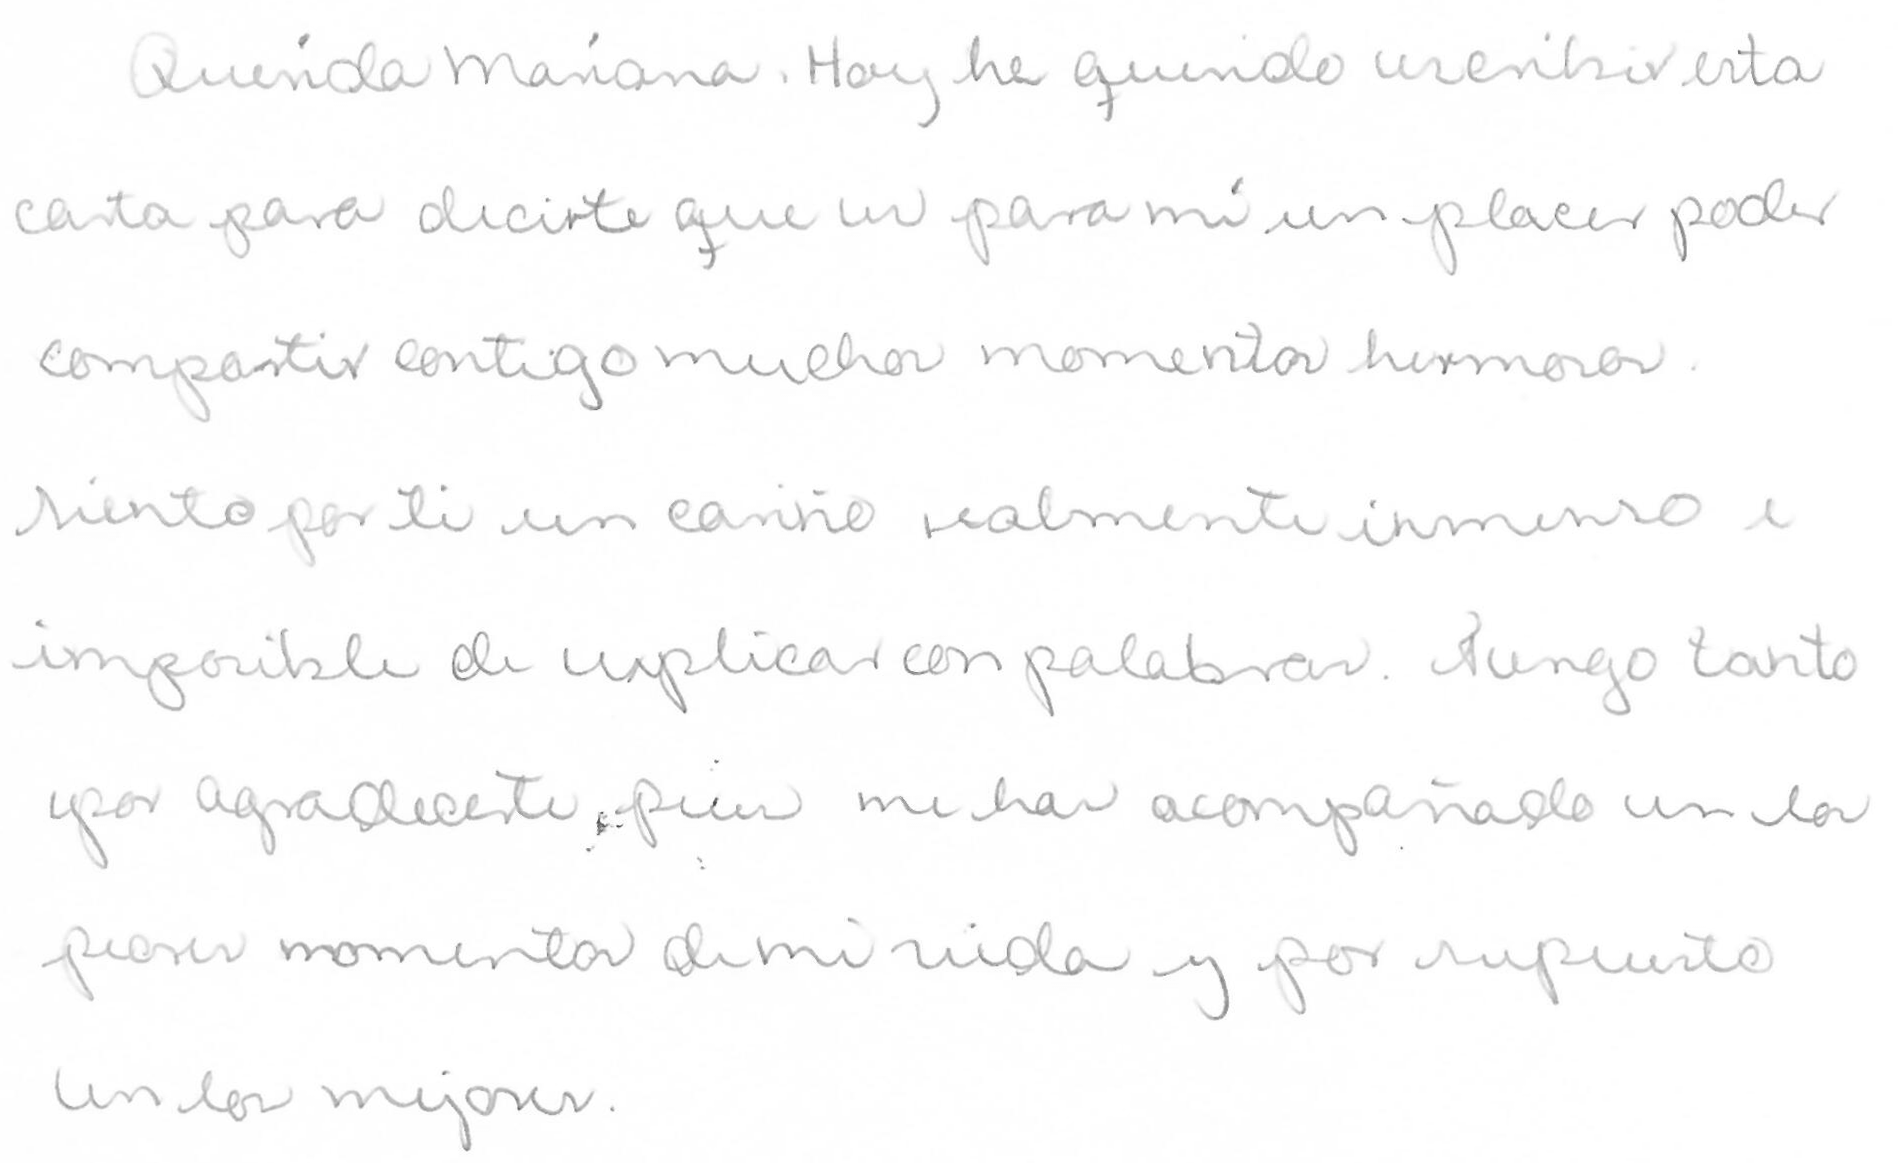 Querida Mariana. Hoy he querido escribir esta
carta para decirte que es para mí un placer poder
compartir contigo muchos momentos hermosos.
Siento por ti un cariño realmente inmenso e
imposible de explicar con palabras. Tengo tanto
por agradecerte, pues me has acompañado en los
peores momentos de mi vida y por supuesto
en los mejores.